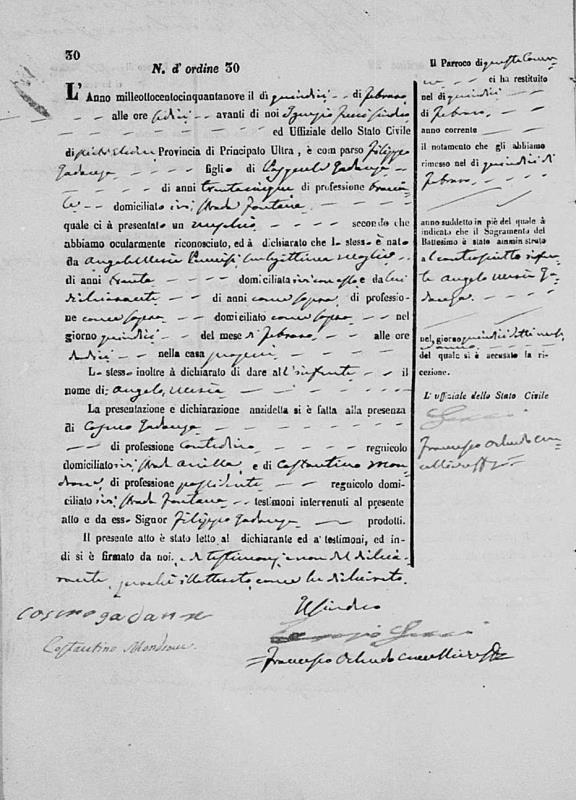 30
N. d' ordine 30
L' Anno milleottocentocinquantanove il dì quindici di febraro
alle ore sedici avanti di noi
ed Uffiziale dello Stato Civile
di Provincia di Principato Ultra, è com parso Filippo
Gadanza figlio di Gadanza
di anni trentacinque di professione
domiciliato ivi strada Fontana
quale ci à presentato un maschio secondo che
abbiamo ocularmente riconosciuto, ed à dichiarato che lo stesso è nato
da Angela Maria moglie
di anni trenta domiciliata ivi con esso e da lui
dichiarante di anni come sopra di professio-
ne come sopra domiciliato come sopra nel
giorno quindici del mese di febraro alle ore
dodici nella casa propria
Lo stesso inoltre à dichiarato di dare all' infante il
nome di Angelo Maria
La presentazione e dichiarazione anzidetta si è fatta alla presenza
di Cosmo Gadanza
di professione contadino regnicolo
domiciliato ivi strada e di Costantino Mon-
di professione possidente regnicolo domi-
ciliato ivi strada Fontana testimoni intervenuti al presente
atto e da esso Signor Filippo Gadanza prodotti.
Il presente atto è stato letto al dichiarante ed a' testimoni, ed in-
di si è firmato da noi, e da testimoni e non del dichia-
rante, perchè illetterato come ha dichiarato.
Cosimo gadanza
Costantino
Il Sindaco
Francesco Orlando cancelliere
Il Parroco di questo Comu-
ne ci ha restituito
nel dì quindici
di febraro
anno corrente
il notamento che gli abbiamo
rimesso nel dì quindici di
febraro
anno suddetto in piè del quale à
indicato che il Sagramento del
Battesimo è stato amministrato
al controscritto infan-
te Angelo Maria Ga-
danza
nel giorno quindici detto mese
ed anno
del quale si è accusato la ri-
cezione.
L' uffiziale dello Stato Civile
Francesco Orlando can-
celliere